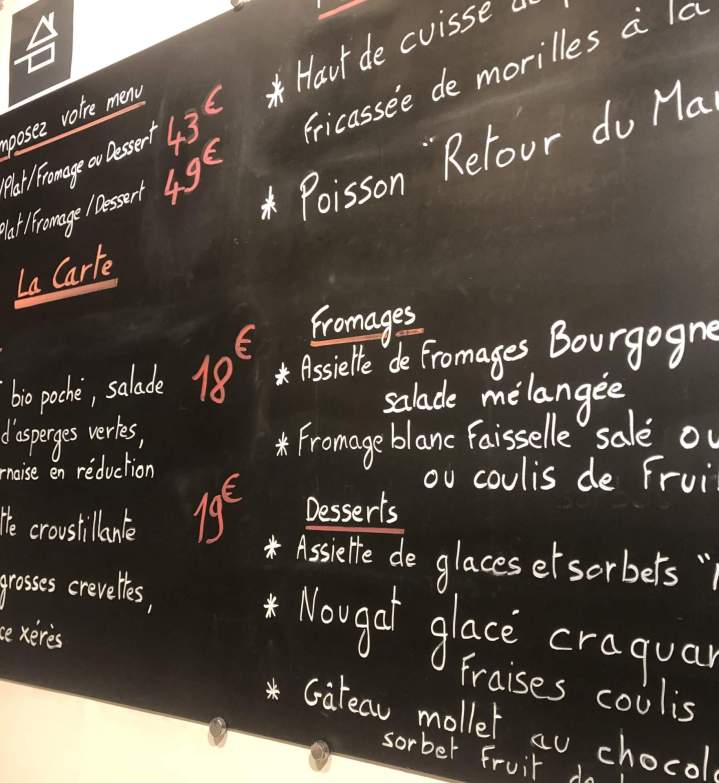 votre menu
Plat/Fromage ou Dessert 43€
Plat/Fromage/Dessert 49€
La Carte
bio poché, salade 18€
d'asperges vertes,
en réduction
croustillante 19€
grosses crevettes,
xérès
* Haut de cuisse
fricassée de morilles à la
* Poisson "Retour du
Fromages
* Assiette de Fromages Bourgogne
salade mélangée
* Fromage blanc Faisselle salé ou
ou coulis de
Desserts
* Assiette de glaces et sorbets "
* Nougat glacé
Fraises coulis
* Gâteau mollet au
sorbet Fruit